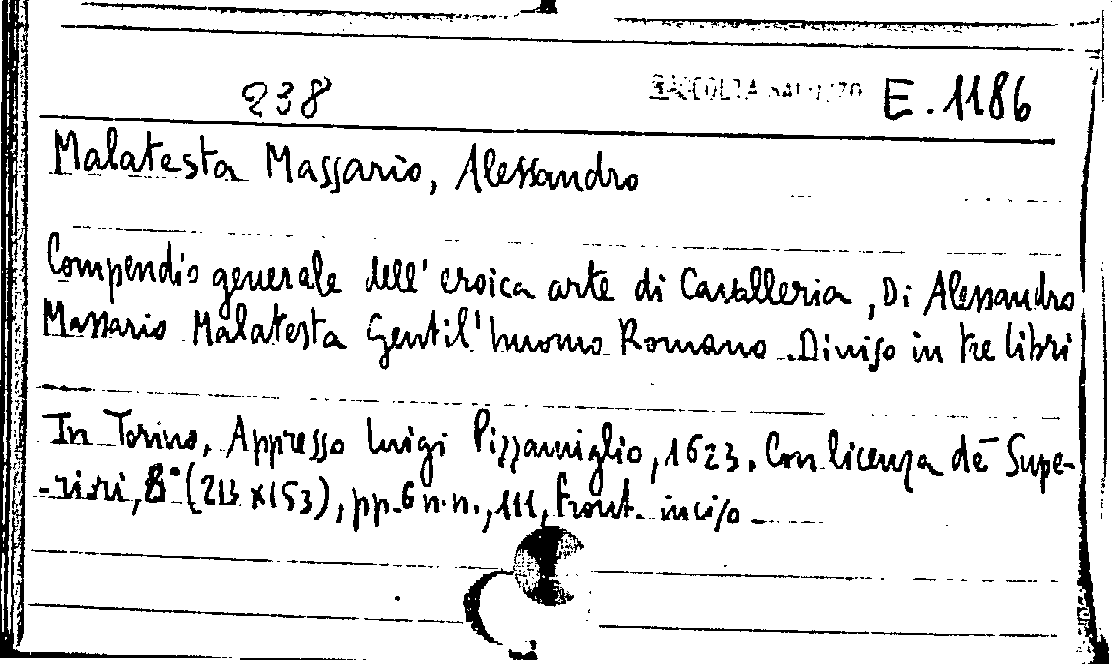 238 RACCOLTA SALUZZO E. 1186
Malatesta Massario, Alessandro
Compendio generale dell' eroica arte di Cavalleria, Di Alessandro
Massario Malatesta Gentil'huomo Romano. Diviso in tre libri
In Torino, Appresso Luigi Pizzamiglio, 1623. Con licenza de' Supe-
-riori, 8° (213 x 153), pp. 6 n.n., 111, Front. inciso